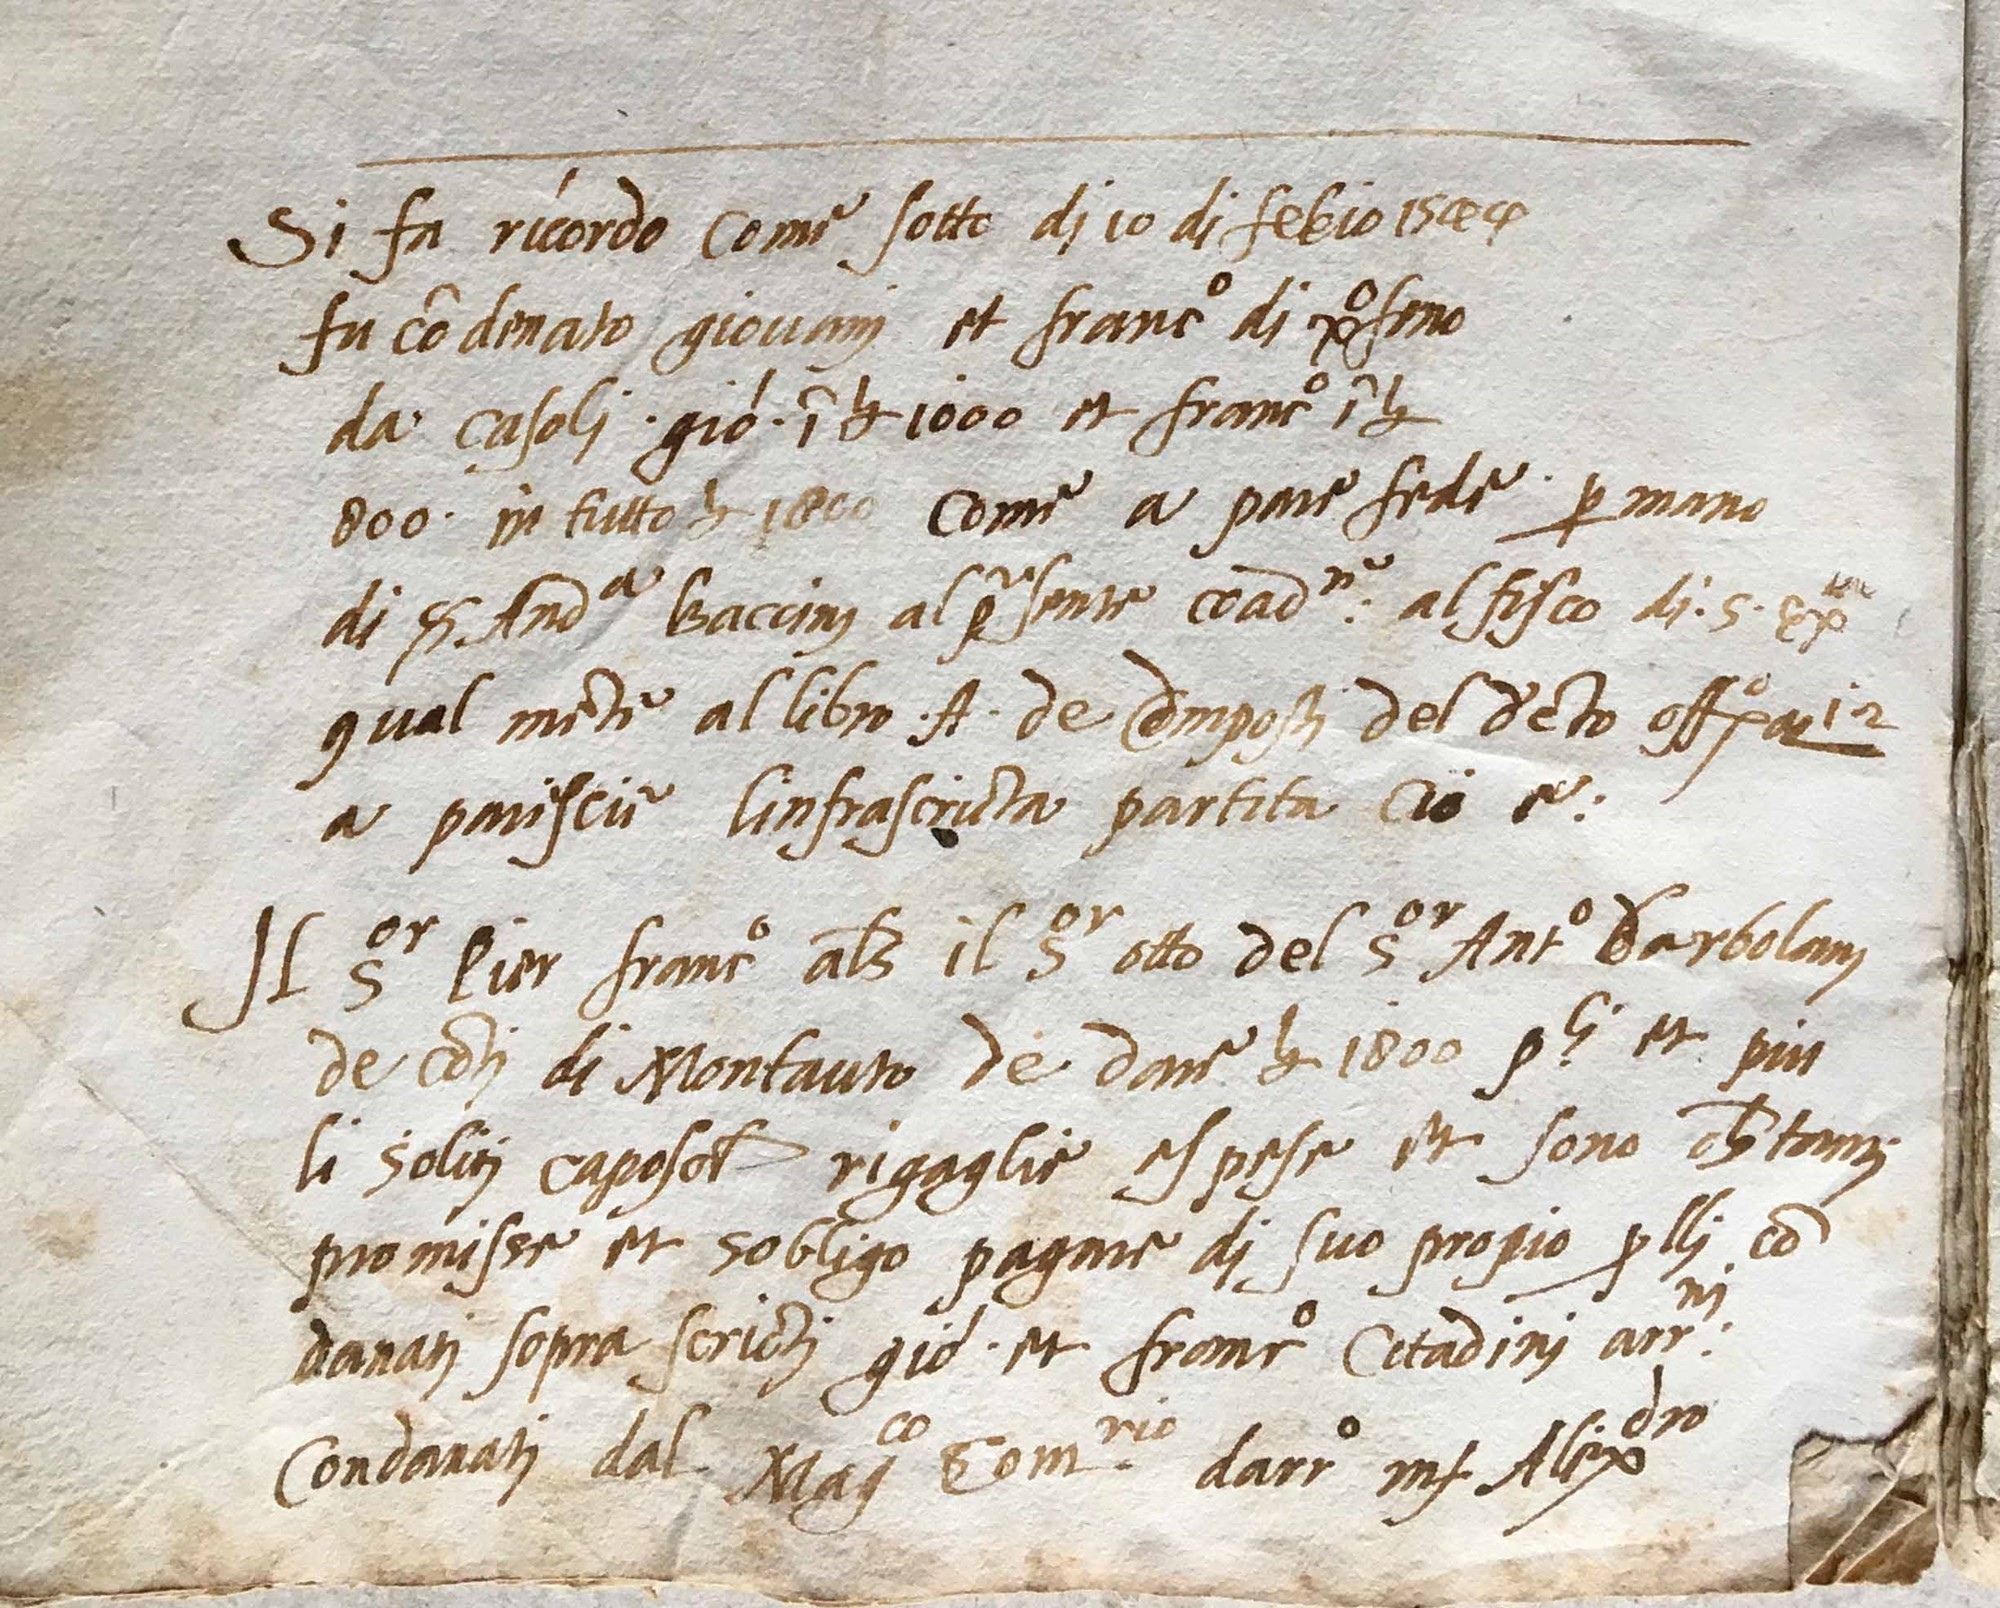 Si fa ricordo Come sotto di 10 di febio
fu cōdenato giovanj et francº di xºfeno
da Casolj · gio · ī ℔ 1000 et francº ī ℔
800 · in tutto ℔ 1800 Come a pare fede · p mano
di And^a baccinj al p̄sente coad^re: al fisco di · S ·
qual mēte al libro · A · de Compostj del decto offº a 12
a pariscie linfrascricta partita Cio e:
Il S^or Pier francº als il S^or otto del S^or Antº Barbolanj
de cōtj di Montauto de dare ℔ 1800 p^li et piu
li solitj caposolt rigaglie e spese et sono
promisse et sobligo pagare di suo propio p llj cō
danatj sopra scrictj gio · et francº Citadinj arr^nj:
Condanatj dal Mag^co Com^rio darrº mf Alex^dro